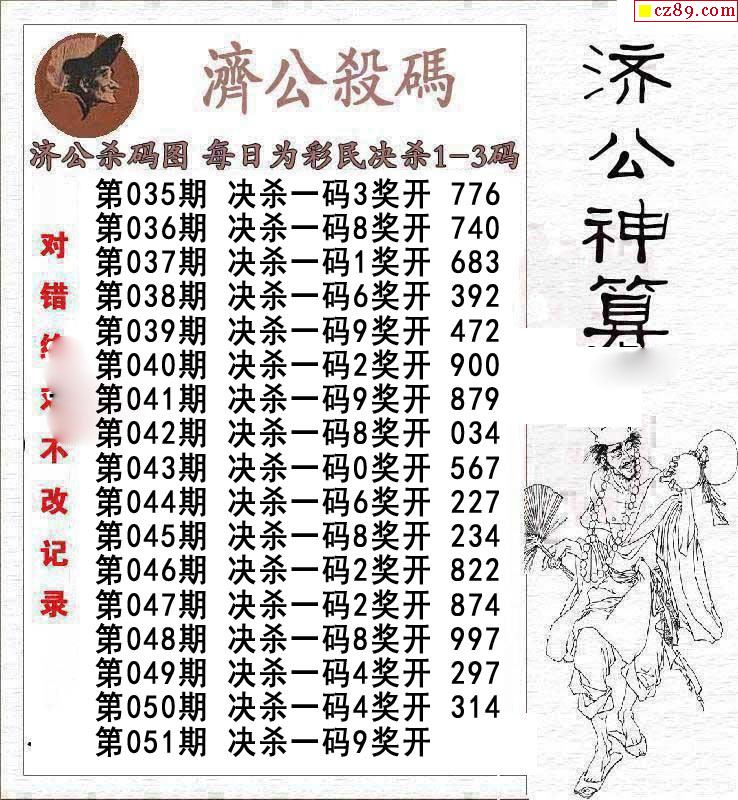 cz89.com
濟公殺碼
济公杀码图 每日为彩民决杀1-3码
第035期 决杀一码3奖开 776
第036期 决杀一码8奖开 740
第037期 决杀一码1奖开 683
第038期 决杀一码6奖开 392
第039期 决杀一码9奖开 472
第040期 决杀一码2奖开 900
第041期 决杀一码9奖开 879
第042期 决杀一码8奖开 034
第043期 决杀一码0奖开 567
第044期 决杀一码6奖开 227
第045期 决杀一码8奖开 234
第046期 决杀一码2奖开 822
第047期 决杀一码2奖开 874
第048期 决杀一码8奖开 997
第049期 决杀一码4奖开 297
第050期 决杀一码4奖开 314
第051期 决杀一码9奖开
对错不改记录
济公神算